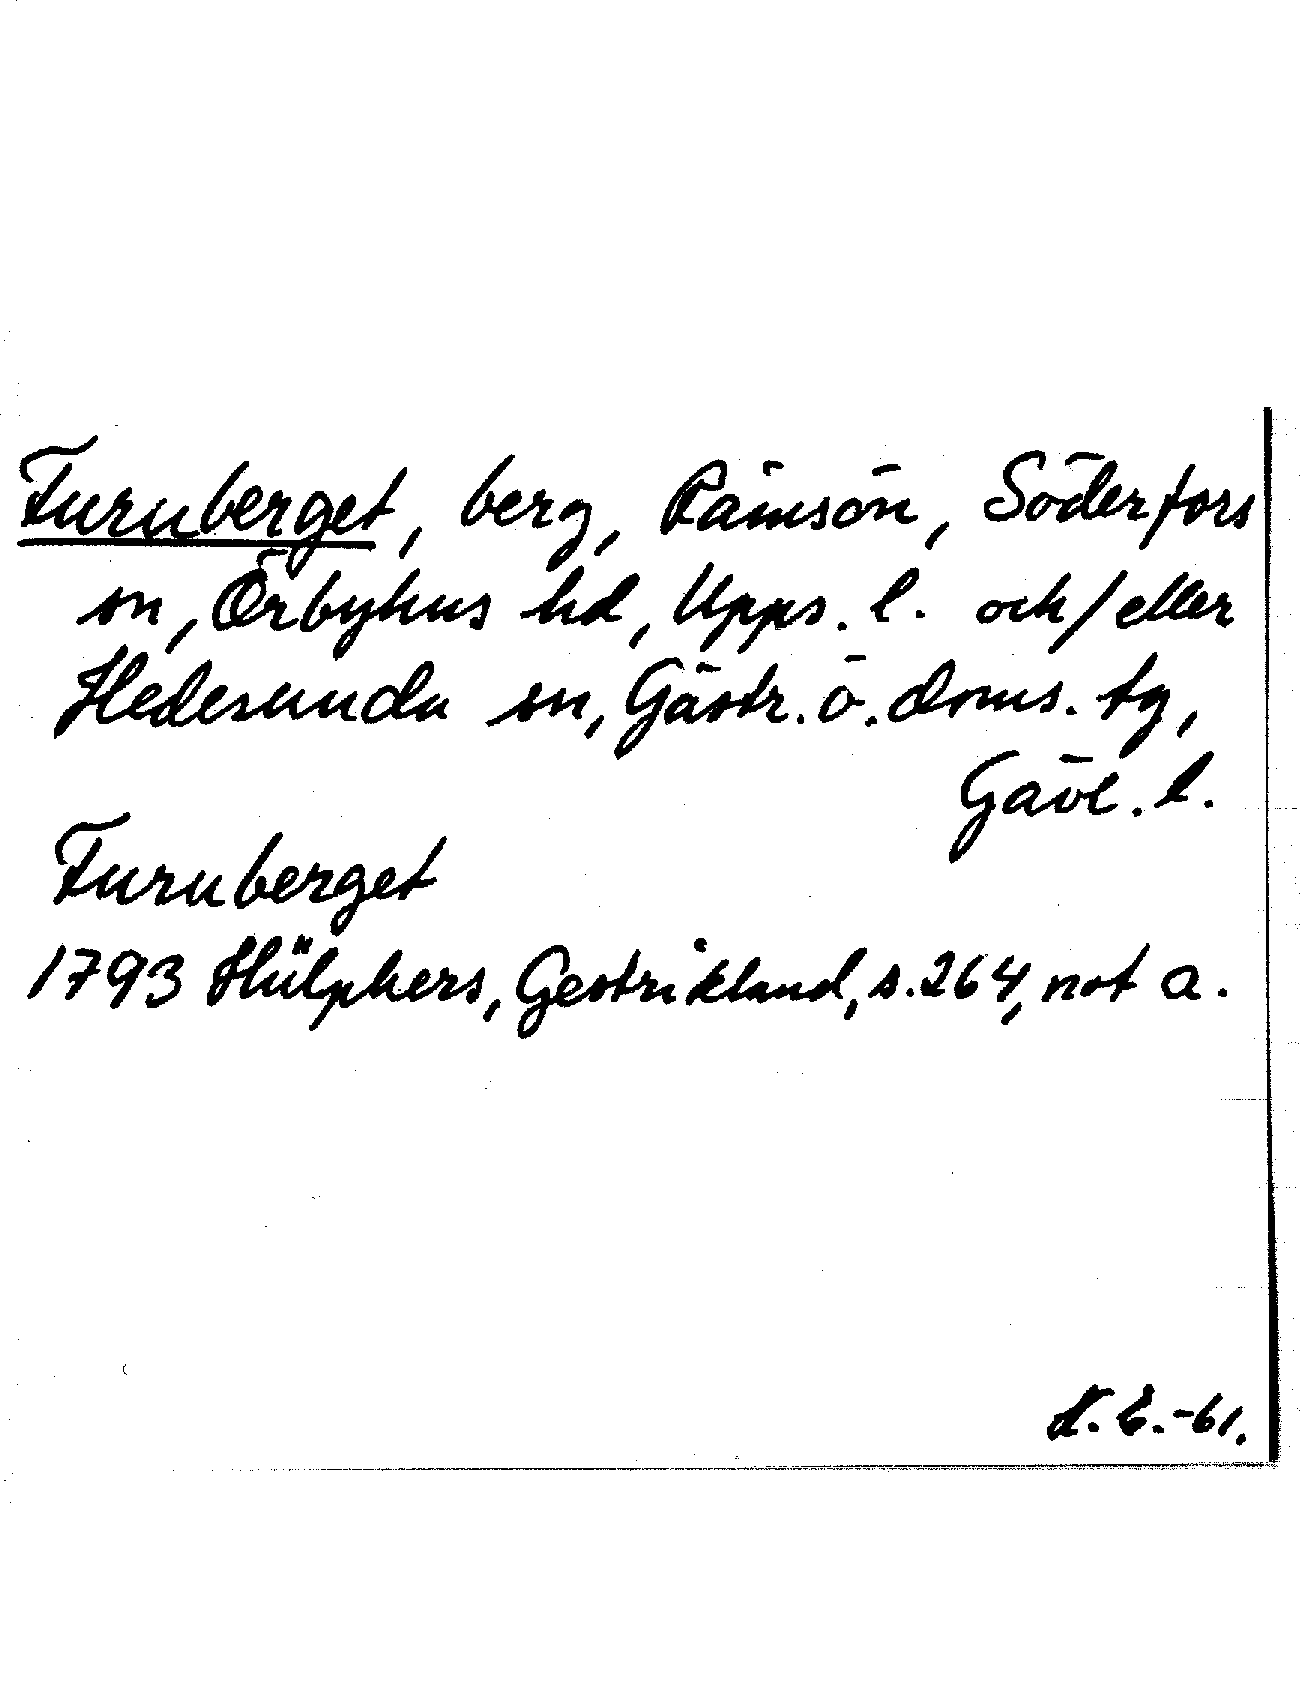 Furuberget, berg, Rämsön, Söderfors
sn, Örbyhus hd, Upps. l. och/eller
Hedesunda sn, Gästr. ö. doms. tg,
Gävl. l.
Furuberget
1793 Hülphers, Gestrikland, s. 264, not a.
N. E. -61.